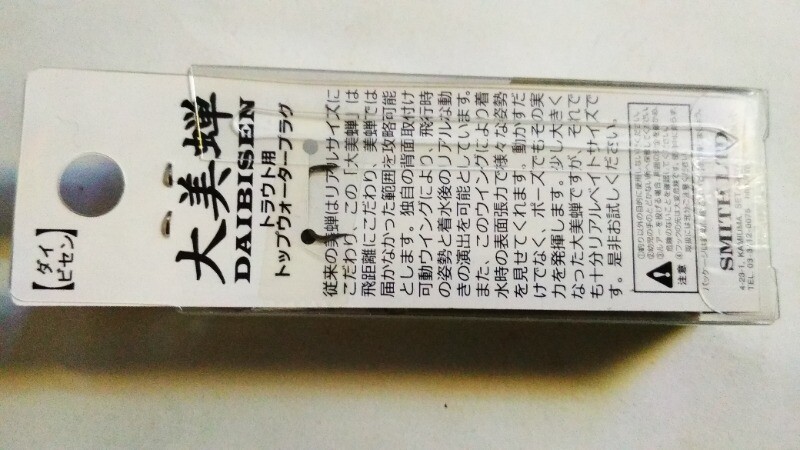 【ダイ
ビセン】
大美蝉
DAIBISEN
トラウト用
トップウォータープラグ
従来の美蝉はリアルサイズに
こだわり、この「大美蝉」は
飛距離にこだわり、美蝉では
届かなかった範囲を攻略可能
とします。独自の背面取付け
可動ウイングにより、飛行時
の姿勢と着水後のリアルな動
きの演出を可能としています。
また、このウイングにより着
水時の表面張力で様々な姿勢
を見せてくれます。動かすだ
けでなく、ポーズでもその実
力を発揮します。少し大きく
なった大美蝉ですが、それで
も十分リアルベイトサイズで
す。是非お試しください。
注意
SMITH LTD